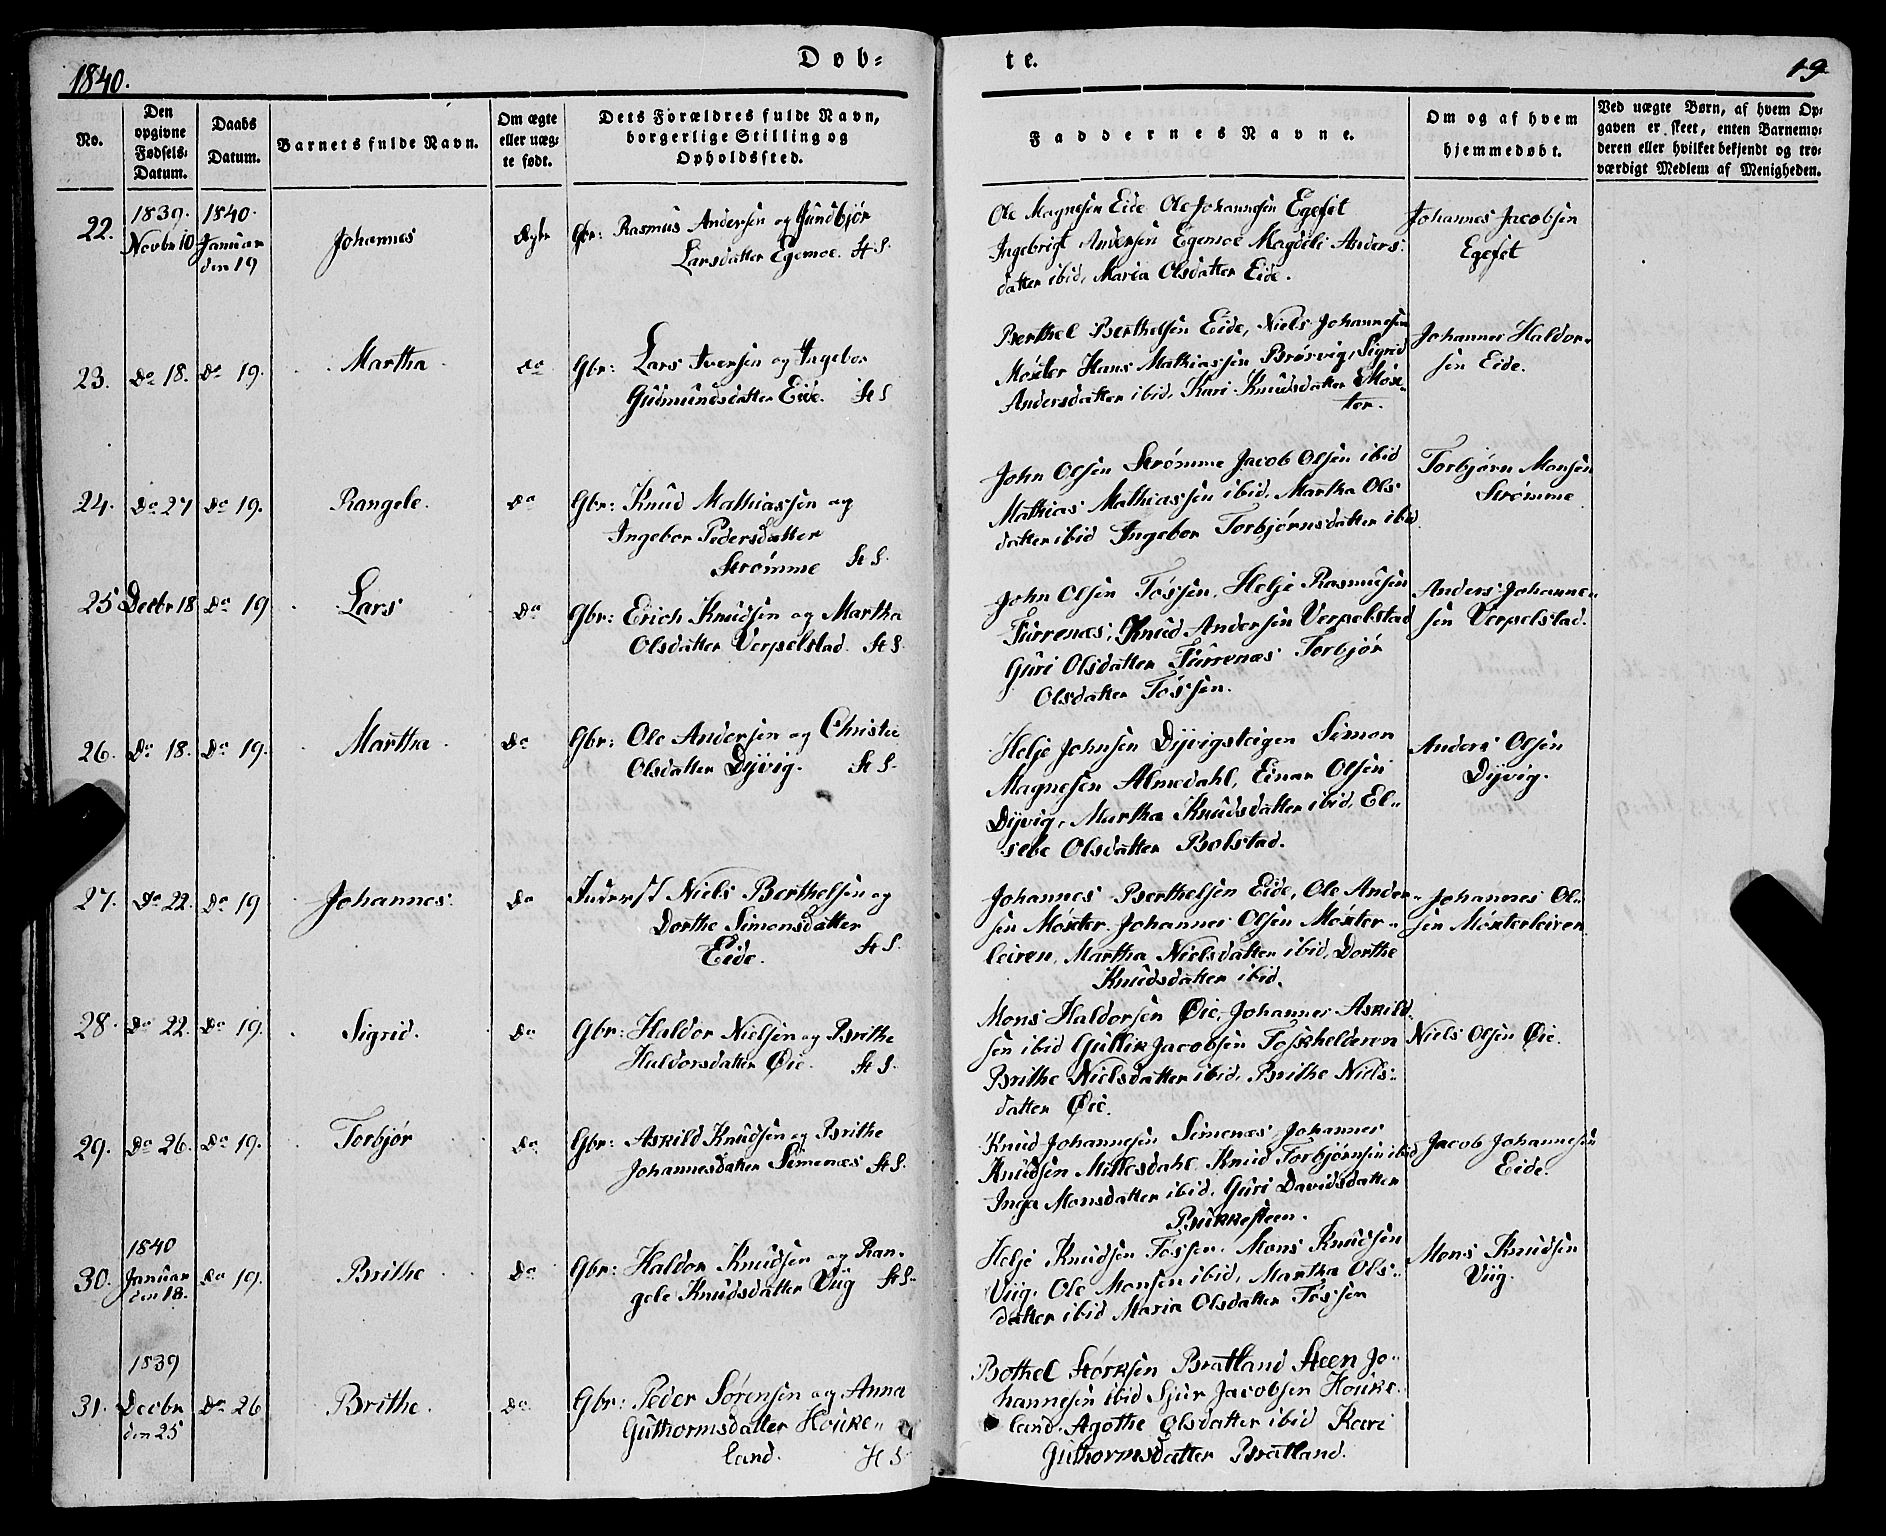 1840.
Døb=
te.
19
No.
Den
opgivne
Fødsels-
Datum.
Daabs
Datum.
Barnets fulde Navn.
Om ægte
eller uæg-
te født.
Dets Forældres fulde Navn,
borgerlige Stilling og
Opholdssted.
Faddernes Navne.
Om og af hvem
hjemmedøbt.
Ved uægte Børn, af hvem Op-
gaven er skeet, enten Barnemo-
deren eller hvilket bekjendt og tro-
værdigt Medlem af Menigheden.
22.
1839.
Novbr 10
1840.
Januar
den 19
Johannes
Ægte
Gbr: Rasmus Andersen og Gundbjør
Larsdatter Egemoe. H S.
Ole Magnesen Eide Ole Johannesen Egeset
Ingebrigt Andersen Egemoe Magdeli Anders-
datter ibid, Maria Olsdatter Eide.
Johannes Jacobsen
Egeset
23. Do 18. Do 19.
Martha
Do
Gbr: Lars Iversen og Ingebor
Gudmundsdatter Eide. H S
Berthel Berthelsen Eide, Niels Johannesen
Møster Hans Mathiassen Brørvig, Sigrid
Andersdatter ibid, Kari Knudsdatter Møs-
ter.
Johannes Haldor-
sen Eide.
24. Do 27 Do 19.
Rangele.
Do
Gbr: Knud Mathiassen og
Ingebor Pedersdatter
Strømme H S.
John Olsen Strømme Jacob Olsen ibid
Mathias Mathiassen ibid, Martha Ols
datter ibid Ingebor Torbjørnsdatter ibid.
Torbjørn Monsen
Strømme
25 Decbr 18 Do 19
Lars
Do
Gbr: Erich Knudsen og Martha
Olsdatter Verpelstad. H S.
John Olsen Tøssen, Helje Rasmusen
Furrenæs, Knud Andersen Verpelstad
Guri Olsdatter Furrenæs Torbjør
Olsdatter Tøssen.
Anders Johanne-
sen Verpelstad.
26. Do 18. Do 19.
Martha
Do
Gbr: Ole Andersen og Christie
Olsdatter Dyvig. H S.
Helje Johnsen Dyvigsteigen Simon
Magnesen Almedahl, Einar Olsen
Dyvig, Martha Knudsdatter ibid, El-
sebe Olsdatter Bolstad.
Anders Olsen
Dyvig.
27. Do 22. Do 19
Johannes.
Do
Inderst Niels Berthelsen og
Dorthe Simonsdatter
Eide. H S.
Johannes Berthelsen Eide, Ole Ander-
sen Møster. Johannes Olsen Møster-
leiren, Martha Nielsdatter ibid, Dorthe
Knudsdatter ibid.
Johannes Ol-
sen Møsterleiren
28. Do 22. Do 19.
Sigrid.
Do
Gbr: Haldor Nielsen og Brithe
Haldorsdatter Øie. H S.
Mons Haldorsen Øie, Johannes Askild
sen ibid Gullik Jacobsen Foskhelderen
Brithe Nielsdatter ibid, Brithe Niels-
datter Øie.
Niels Olsen Øie.
29. Do 26. Do 19.
Torbjør
Do
Gbr: Askild Knudsen og Brithe
Johannesdatter Simenæs H S.
Knud Johannesen Simenæs, Johannes
Knudsen Millesdahl Knud Torbjørnsen ibid
Inga Monsdatter ibid, Guri Davidsdatter
Bukkesteen.
Jacob Johannesen
Eide.
30.
1840
Januar
den 18.
Do 19.
Brithe
Do
Gbr: Haldor Knudsen og Ran-
gele Knudsdatter Viig H S.
Helje Knudsen Tøssen. Mons Knudsen
Viig, Ole Monsen ibid, Martha Ols-
datter ibid Maria Olsdatter Tøssen
Mons Knudsen
Viig.
31.
1839
Decbr
den 25
Do 26
Brithe.
Do
Gbr: Peder Sørensen og Anna
Guthormsdatter Houke-
land. H S.
Bothel Størksen Bratland Steen Jo-
hannesen ibid Sjur Jacobsen Houke-
land. Agothe Olsdatter ibid Kari
Guthormsdatter Bratland.